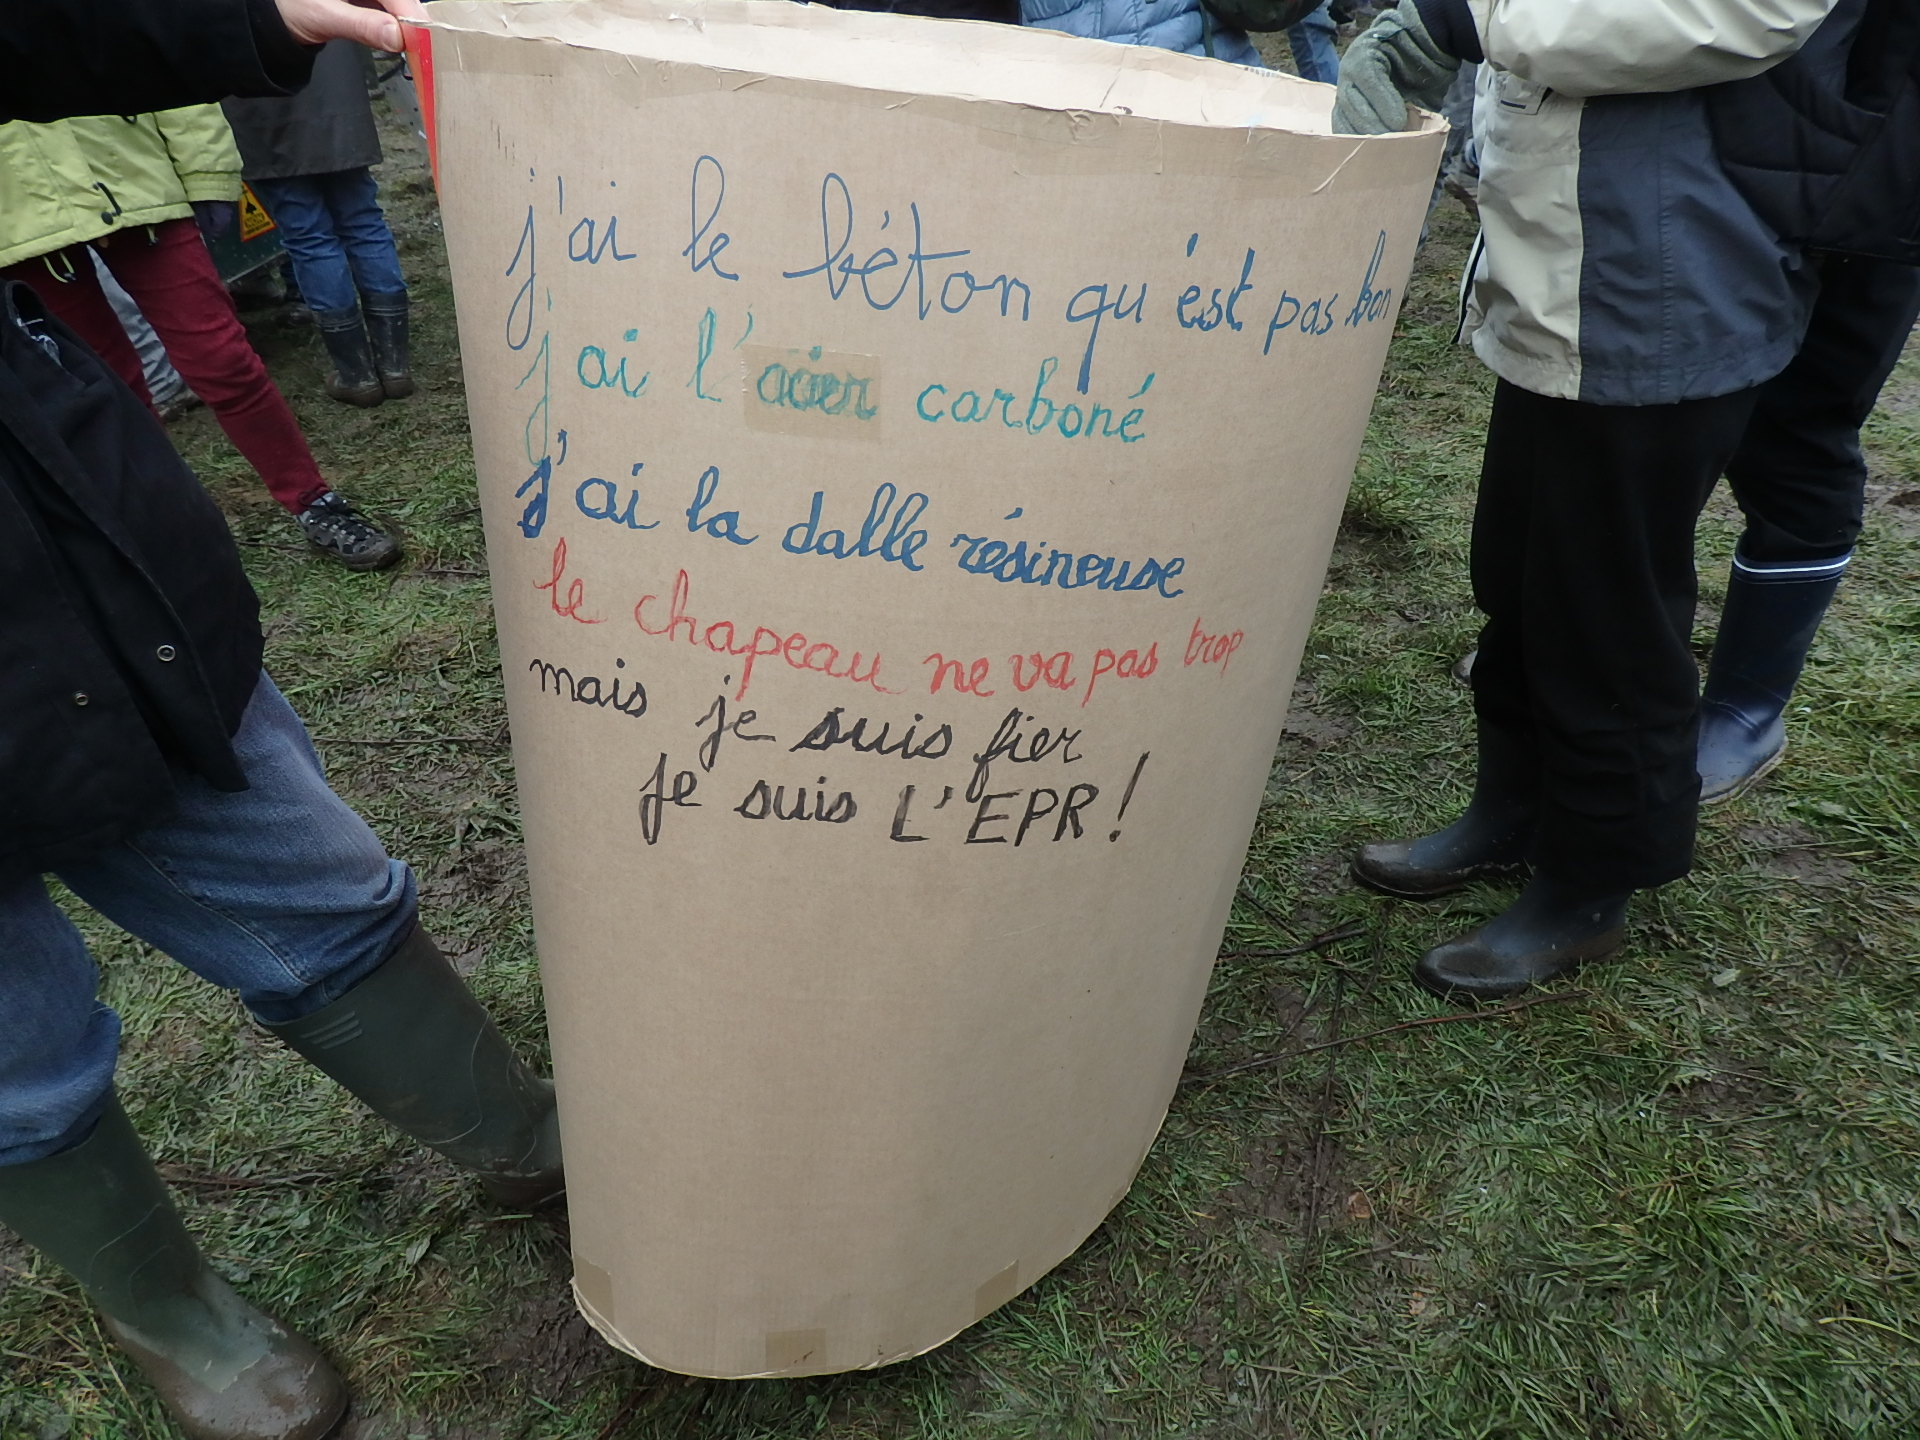 j'ai le béton qu'est pas bon
j'ai l'acier carboné
j'ai la dalle résineuse
le chapeau ne va pas trop
mais je suis fier
je suis L'EPR !